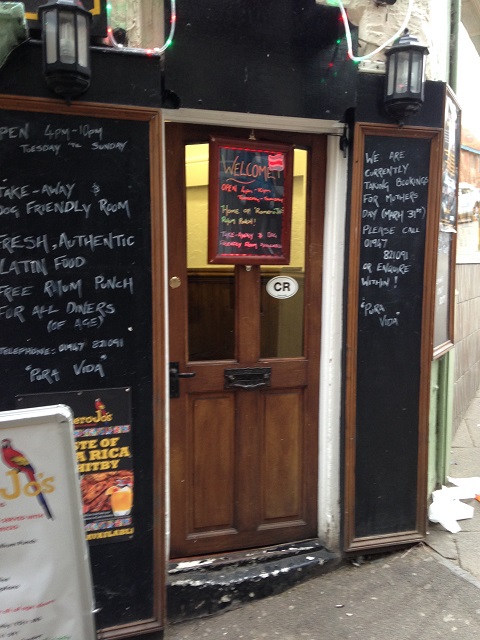 OPEN 4PM-10PM
TUESDAY TO SUNDAY
TAKE-AWAY &
DOG FRIENDLY ROOM
FRESH, AUTHENTIC
LATIN FOOD
FREE RHUM PUNCH
FOR ALL DINERS
(OF AGE)
TELEPHONE: 01947 821091
"PURA VIDA"
eroJo's
TE OF
A RICA
HITBY
AVAILABLE!
Jo's
WELCOME!
OPEN 4pm-10pm
Tuesday - Sunday
Home of
Rhum Punch!
TAKE-AWAY & DOG
FRIENDLY ROOM
CR
WE ARE
CURRENTLY
TAKING BOOKINGS
FOR MOTHERS
DAY (MARH 31ST)
PLEASE CALL
01947
821091
OR ENQUIRE
WITHIN!
"PURA
VIDA"